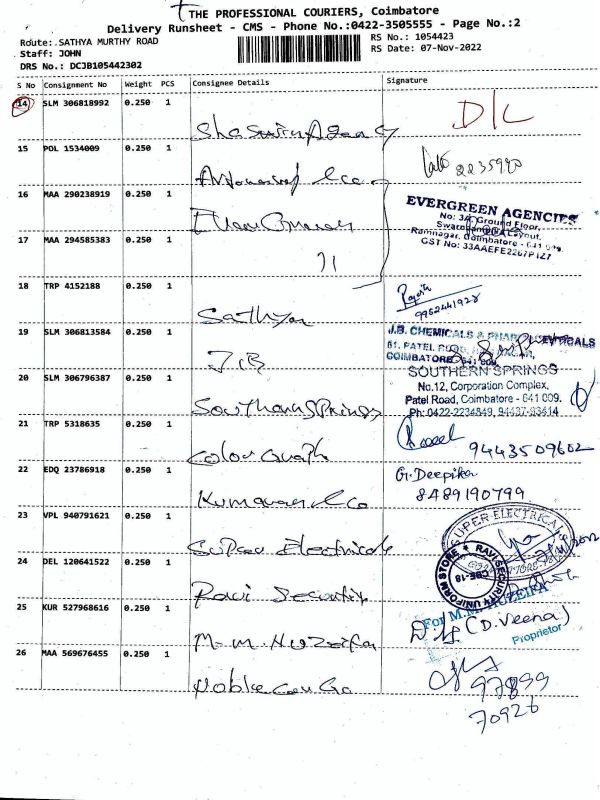 THE PROFESSIONAL COURIERS, Coimbatore
Delivery Runsheet - CMS - Phone No.:0422-3505555 - Page No.:2
Route:.SATHYA MURTHY ROAD
Staff: JOHN
DRS No.: DCJB105442302
RS No.: 1054423
RS Date: 07-Nov-2022
S No Consignment No Weight PCS Consignee Details Signature
14 SLM 306818992 0.250 1 D/L
15 POL 1534009 0.250 1 2235990
16 MAA 290238919 0.250 1
EVERGREEN AGENCIES
No: 3A, Ground Floor,
Layout,
Ramnagar, Coimbatore - 641 009.
GST No: 33AAEFE2267P1Z7
17 MAA 294585383 0.250 1
18 TRP 4152188 0.250 1 Sathya
9952441928
19 SLM 306813584 0.250 1 JB
J.B. CHEMICALS & PHARMACEUTICALS
COIMBATORE
20 SLM 306796387 0.250 1 Southern Springs
SOUTHERN SPRINGS
No.12, Corporation Complex,
Patel Road, Coimbatore - 641 009.
Ph: 0422-2234849, 94437-93614
21 TRP 5318635 0.250 1 9443509602
22 EDQ 23786918 0.250 1 Kumaran & co
G. Deepika
8489190799
23 VPL 940791621 0.250 1 Super Electricals
SUPER ELECTRICALS
24 DEL 120641522 0.250 1 Ravi Security
RAVI SECURITY UNIFORM STORE
CBE-18
25 KUR 527968616 0.250 1 M.M. Huzeifa
For M.M. HUZEIFA
(D. Veena)
Proprietor
26 MAA 569676455 0.250 1
97899
70926